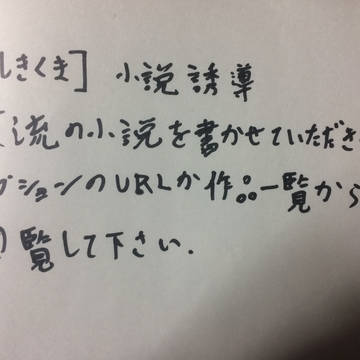 しきくき] 小説誘導
流の小説を書かせていただき
プションのURLか作品一覧から
覧して下さい.